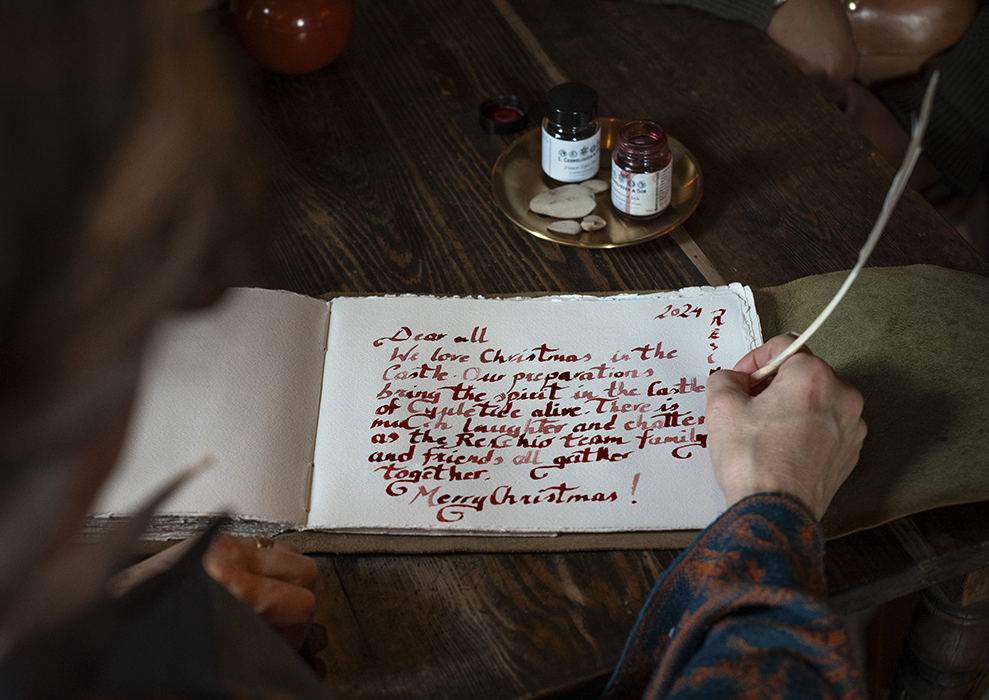 2024
Dear all
We love Christmas in the
Castle. Our preparations
bring the spirit in the Castle
of Cypletide alive. There is
much laughter and chatter
as the Reschio team family
and friends all gather
together.
Merry Christmas!